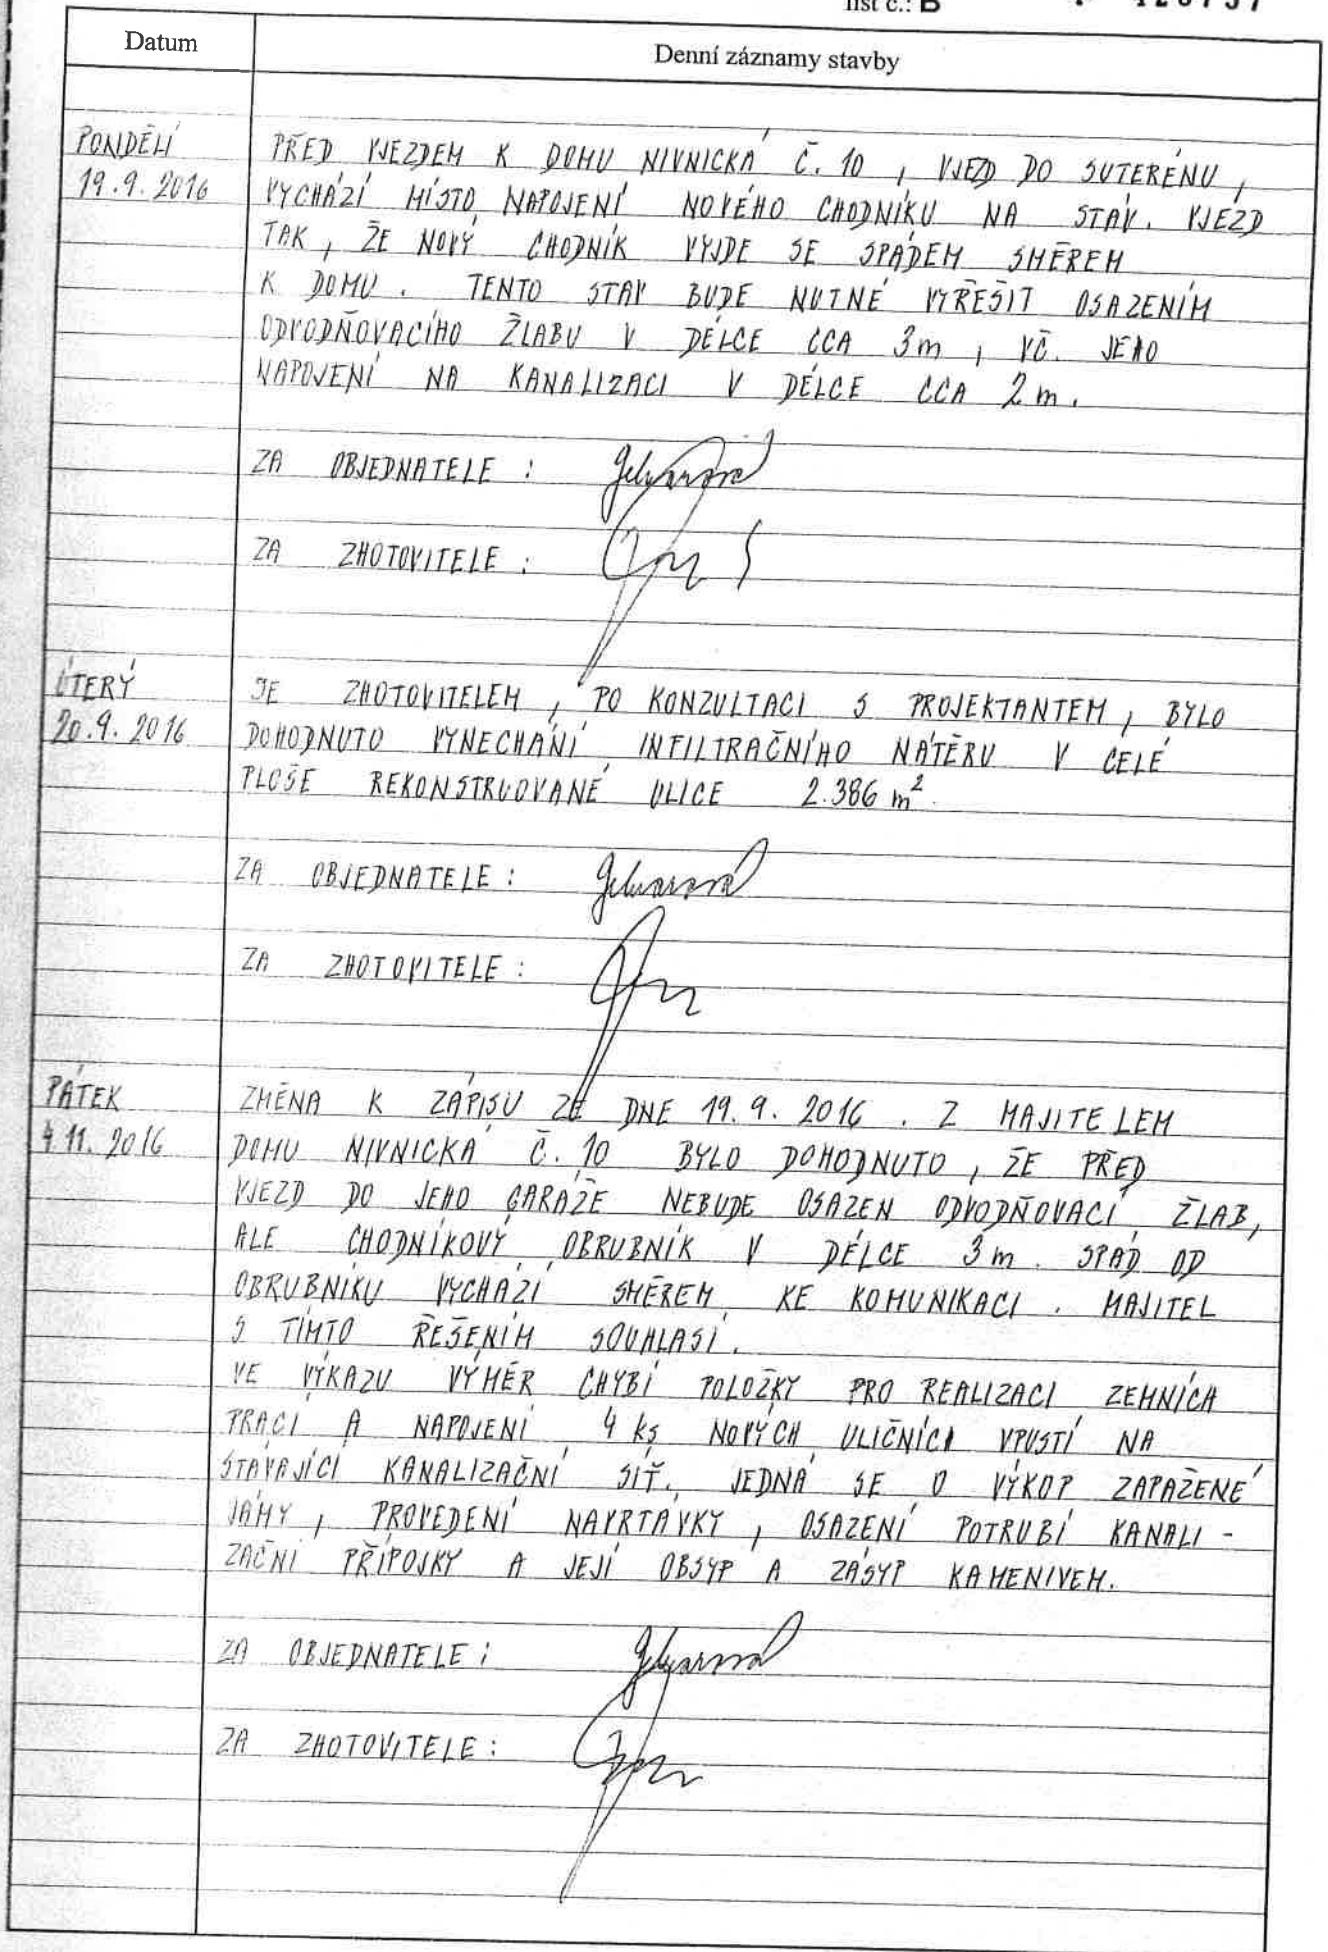 list č.: B
Datum
Denní záznamy stavby
PONDĚLÍ
19.9.2016
PŘED VJEZDEM K DOMU NIVNICKÁ Č. 10 , VJEZD DO SUTERÉNU ,
VYCHÁZÍ MÍSTO NAPOJENÍ NOVÉHO CHODNÍKU NA STÁV. VJEZD
TAK , ŽE NOVÝ CHODNÍK VYJDE SE SPÁDEM SMĚREM
K DOMU . TENTO STAV BUDE NUTNÉ VYŘEŠIT OSAZENÍM
ODVODŇOVACÍHO ŽLABU V DÉLCE CCA 3m , VČ. JEHO
NAPOJENÍ NA KANALIZACI V DÉLCE CCA 2 m .
ZA OBJEDNATELE :
ZA ZHOTOVITELE :
ÚTERÝ
20.9.2016
SE ZHOTOVITELEM , PO KONZULTACI S PROJEKTANTEM , BYLO
DOHODNUTO VYNECHÁNÍ INFILTRAČNÍHO NÁTĚRU V CELÉ
PLOŠE REKONSTRUOVANÉ ULICE 2.386 m².
ZA OBJEDNATELE :
ZA ZHOTOVITELE :
PÁTEK
4 11. 2016
ZMĚNA K ZÁPISU ZE DNE 19.9.2016 . Z MAJITELEM
DOMU NIVNICKÁ Č. 10 BYLO DOHODNUTO , ŽE PŘED
VJEZD DO JEHO GARÁŽE NEBUDE OSAZEN ODVODŇOVACÍ ŽLAB,
ALE CHODNÍKOVÝ OBRUBNÍK V DÉLCE 3m . SPÁD OD
OBRUBNÍKU VYCHÁZÍ SMĚREM KE KOMUNIKACI . MAJITEL
S TÍMTO ŘEŠENÍM SOUHLASÍ .
VE VÝKAZU VÝMĚR CHYBÍ POLOŽKY PRO REALIZACI ZEMNÍCH
PRACÍ A NAPOJENÍ 4 ks NOVÝCH ULIČNÍCH VPUSTÍ NA
STÁVAJÍCÍ KANALIZAČNÍ SÍŤ. JEDNÁ SE O VÝKOP ZAPAŽENÉ
JÁMY , PROVEDENÍ NAVRTÁVKY , OSAZENÍ POTRUBÍ KANALI -
ZAČNÍ PŘÍPOJKY A JEJÍ OBSYP A ZÁSYP KAMENIVEM.
ZA OBJEDNATELE :
ZA ZHOTOVITELE :